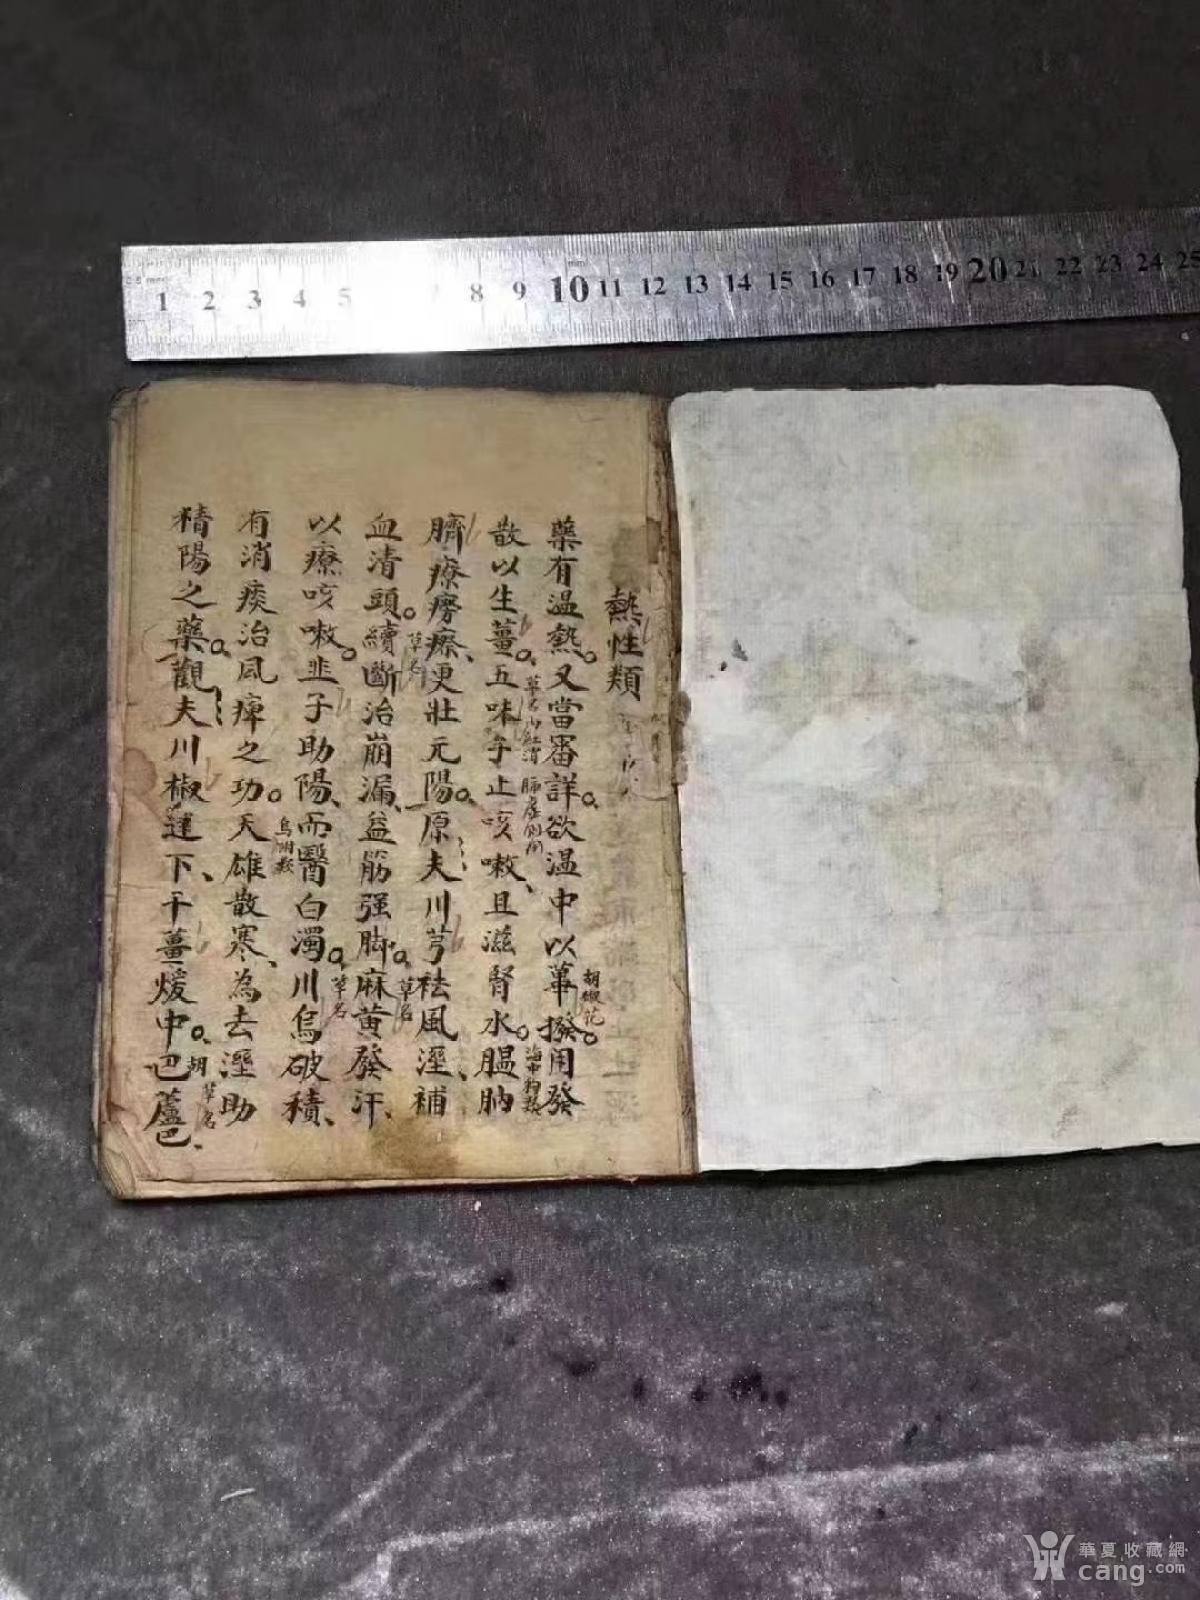 0.5 mm
mm
1 2 3 4 5 7 8 9 10 11 12 13 14 15 16 17 18 19 20 21 22 23 24 25
熱性類
藥有温熱。又當審詳。欲温中以蓽撥。用發
胡椒花
散以生薑。五味子止咳嗽、且滋腎水。膃肭
臍療癆瘵、更壯元陽。原夫川芎袪風溼、補
草名
血清頭。續斷治崩漏、益筋强脚。麻黃發汗、
草名
以療咳嗽。韭子助陽、而醫白濁。川烏破積、
草名
有消痰治風痺之功。天雄散寒、為去溼助
烏附類
精陽之藥。觀夫川椒達下、干薑煖中。胡蘆巴、
草名
華夏收藏網
cang.com